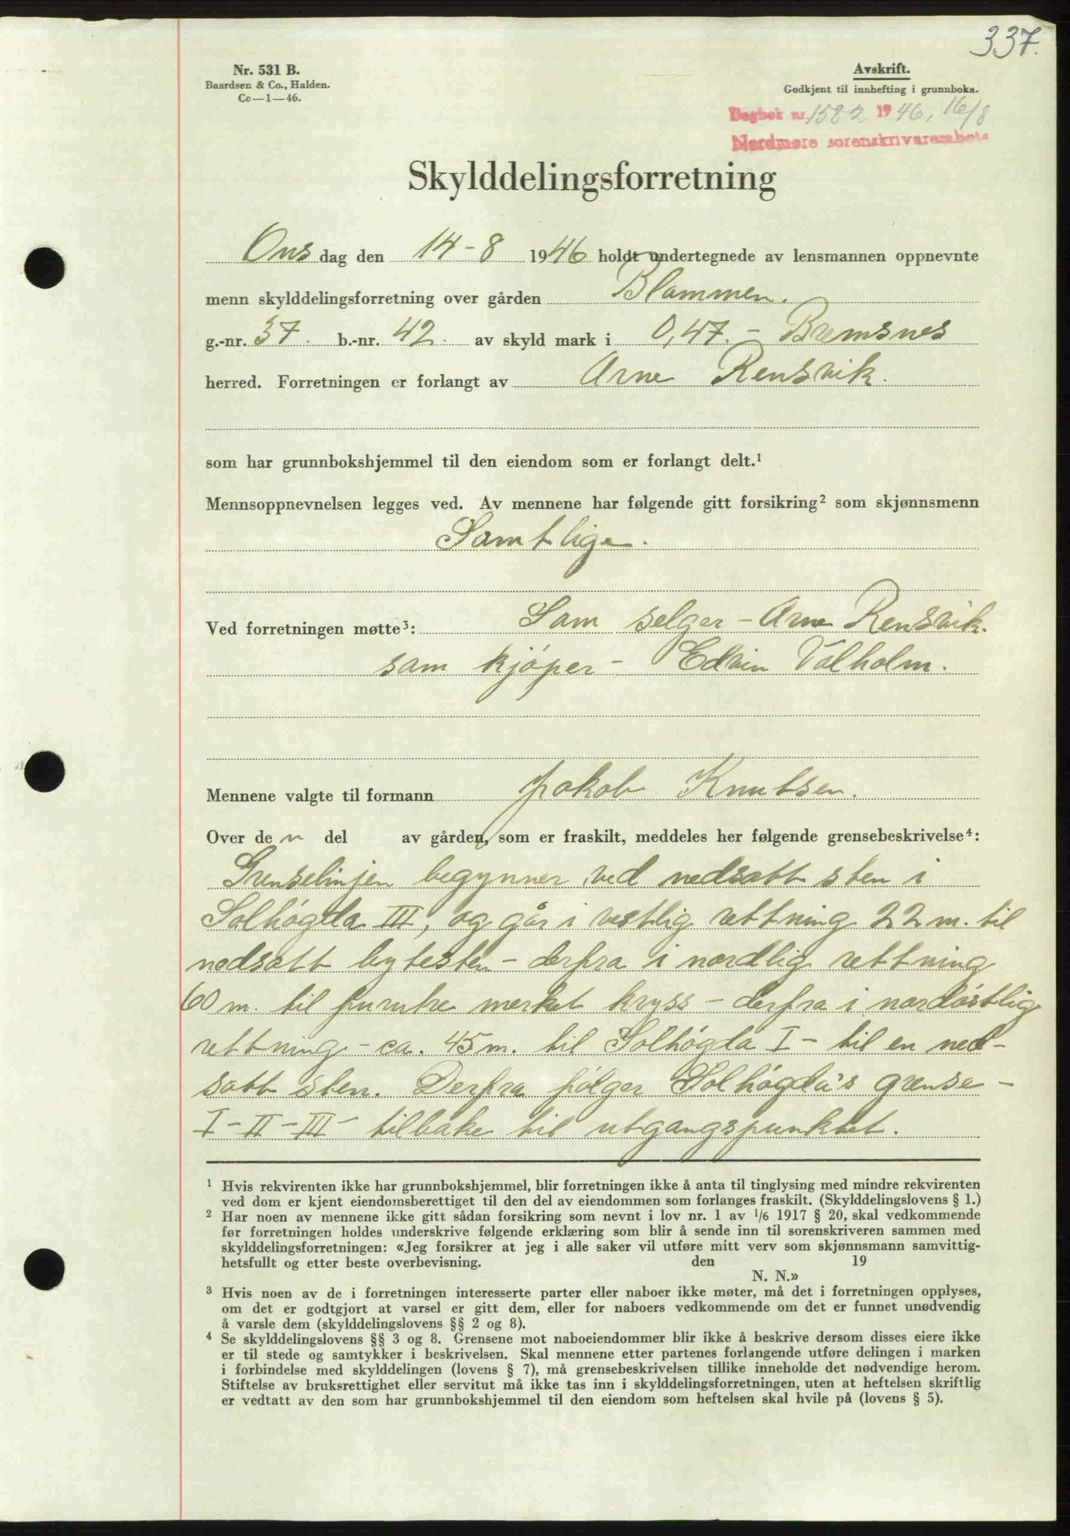 337.
Nr. 531 B.
Baardsen & Co., Halden.
Cc—1—46.
Avskrift.
Godkjent til innhefting i grunnboka.
Dagbok nr. 1582 1946, 16/8
Nordmøre sorenskriverembete
Skylddelingsforretning
Onsdag den 14-8 1946 holdt undertegnede av lensmannen oppnevnte
menn skylddelingsforretning over gården Blammen.
g.-nr. 37. b.-nr. 42. av skyld mark i 0,47. - Bremsnes
herred. Forretningen er forlangt av Arne Rensvik.
som har grunnbokshjemmel til den eiendom som er forlangt delt.¹
Mennsoppnevnelsen legges ved. Av mennene har følgende gitt forsikring² som skjønnsmenn
Samtlige.
Ved forretningen møtte³: Som selger - Arne Rensvik.
som kjöper - Edvin Valholm.
Mennene valgte til formann Jakob Knutsen.
Over den del av gården, som er fraskilt, meddeles her følgende grensebeskrivelse⁴:
Grenselinjen begynner ved nedsatt sten i
Solhögda III, og går i vestlig rettning 22 m. til
nedsatt bytesten - derfra i nordlig rettning
60 m. til furutre merket kryss - derfra i nordöstlig
rettning - ca. 45 m. til Solhögda I - til en ned-
satt sten. Derfra fölger Solhögda's grense -
I - II - III - tilbake til utgangspunktet.
¹ Hvis rekvirenten ikke har grunnbokshjemmel, blir forretningen ikke å anta til tinglysing med mindre rekvirenten
ved dom er kjent eiendomsberettiget til den del av eiendommen som forlanges fraskilt. (Skylddelingslovens § 1.)
² Har noen av mennene ikke gitt sådan forsikring som nevnt i lov nr. 1 av 1/6 1917 § 20, skal vedkommende
før forretningen holdes underskrive følgende erklæring som blir å sende inn til sorenskriveren sammen med
skylddelingsforretningen: «Jeg forsikrer at jeg i alle saker vil utføre mitt verv som skjønnsmann samvittig-
hetsfullt og etter beste overbevisning. den 19
N. N.»
³ Hvis noen av de i forretningen interesserte parter eller naboer ikke møter, må det i forretningen opplyses,
om det er godtgjort at varsel er gitt dem, eller for naboers vedkommende om det er funnet unødvendig
å varsle dem (skylddelingslovens §§ 2 og 8).
⁴ Se skylddelingslovens §§ 3 og 8. Grensene mot naboeiendommer blir ikke å beskrive dersom disses eiere ikke
er til stede og samtykker i beskrivelsen. Skal mennene etter partenes forlangende utføre delingen i marken
i forbindelse med skylddelingen (lovens § 7), må grensebeskrivelsen tillike inneholde det nødvendige herom.
Stiftelse av bruksrettighet eller servitut må ikke tas inn i skylddelingsforretningen, uten at heftelsen skriftlig
er vedtatt av den som har grunnbokshjemmel til den eiendom som heftelsen skal hvile på (lovens § 5).